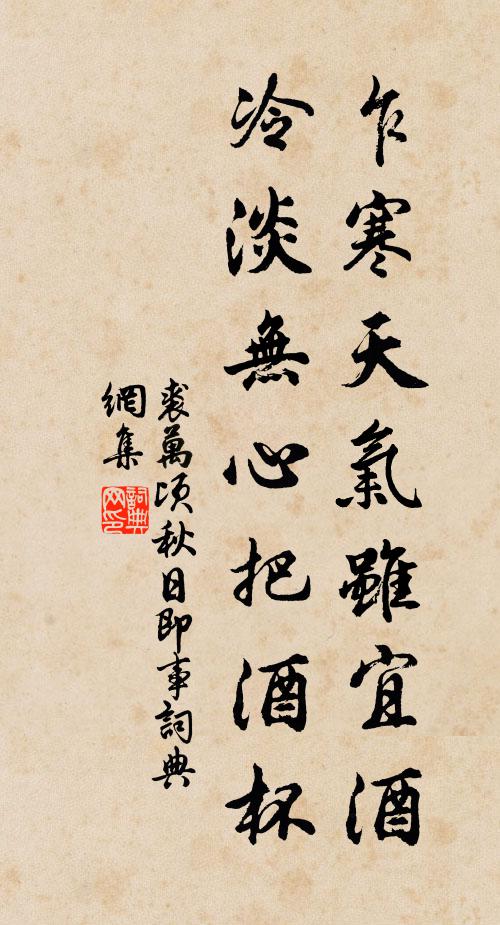 乍寒天氣雖宜酒
冷淡無心把酒杯
裘萬頃秋日即事詞典
網集
詞典網印